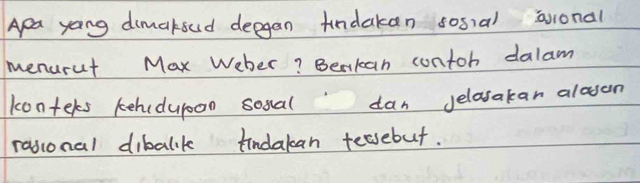 Apa yang dimaksud dengan tindakan sosial rasional
menurut Max Weber? Berikan contoh dalam
konteks kehidupan sosial dan jelasakan alasan
rasional dibalik tindakan tersebut.